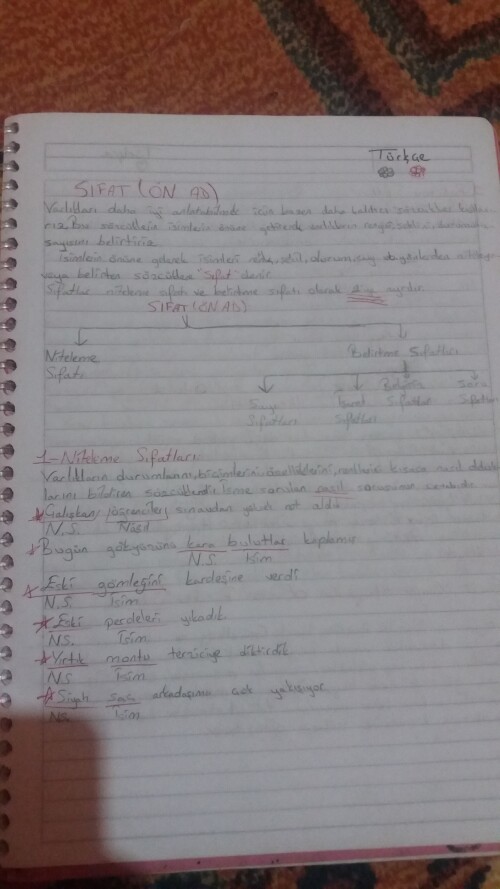 Türkçe
SIFAT (ÖN AD)
Varlıkları daha iyi anlatabilmek için bazen daha sözcükler
sözcüklerin isimlerin önüne getirerek varlıkların rengini, şeklini, durumunu
sayısını belirtiriz.
İsimlerin önüne gelerek isimleri renk, şekil, durum, sayı
veya belirten sözcüklere "Sıfat" denir.
Sıfatlar niteleme sıfatı ve belirtme sıfatı olarak 2'ye ayrılır.
SIFAT (ÖN AD)
Niteleme Sıfatı
Belirtme Sıfatları
Sayı Sıfatları
İşaret Sıfatları
Belgisiz Sıfatlar
Soru Sıfatları
1-Niteleme Sıfatları:
Varlıkların durumlarını, biçimlerini, özelliklerini, renklerini kısaca nasıl olduk
larını bildiren sözcüklerdir. İsme sorulan nasıl sorusunun cevabıdır.
Çalışkan öğrenciler sınavdan yüksek not aldı.
N.S. Nasıl
Bugün gökyüzünü kara bulutlar kaplamış
N.S. İsim
Eski gömleğini kardeşine verdi
N.S. İsim
Eski perdeleri yıkadık
N.S. İsim
Yırtık montu terziye diktirdik
N.S İsim
Siyah saç arkadaşıma çok yakışıyor
N.S. İsim